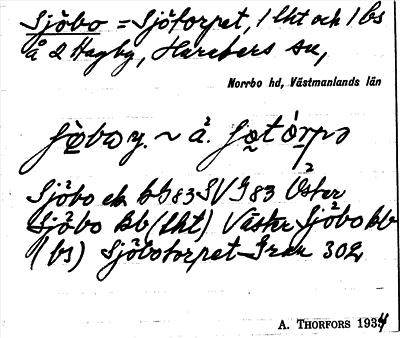 Sjöbo = Sjötorpet, 1 lht och 1 bs
å 2 Hagby, Harakers sn,
Norrbo hd, Västmanlands län
Sjöbo ek bb83 SV G83 Öster
Sjöbo kb (lht) Väster Sjöbo kb
(bs) Sjöbotorpet Gran 302
A. THORFORS 1934